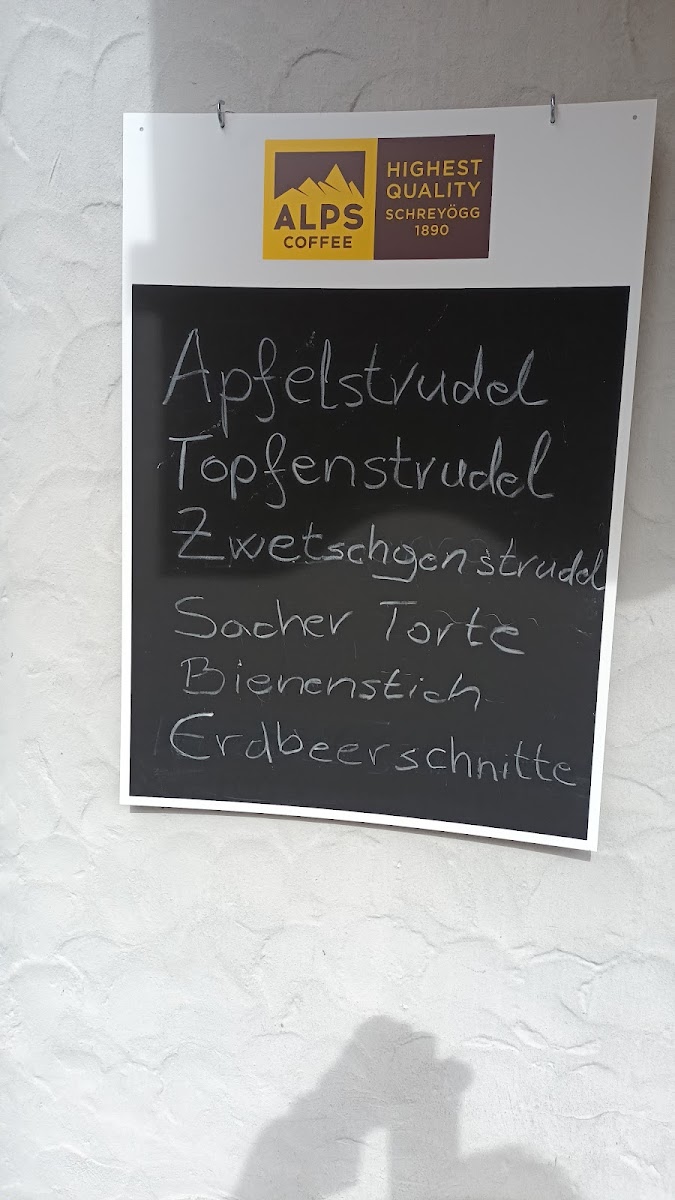 ALPS
COFFEE
HIGHEST
QUALITY
SCHREYÖGG
1890
Apfelstrudel
Topfenstrudel
Zwetschgenstrudel
Sacher Torte
Bienenstich
Erdbeerschnitte